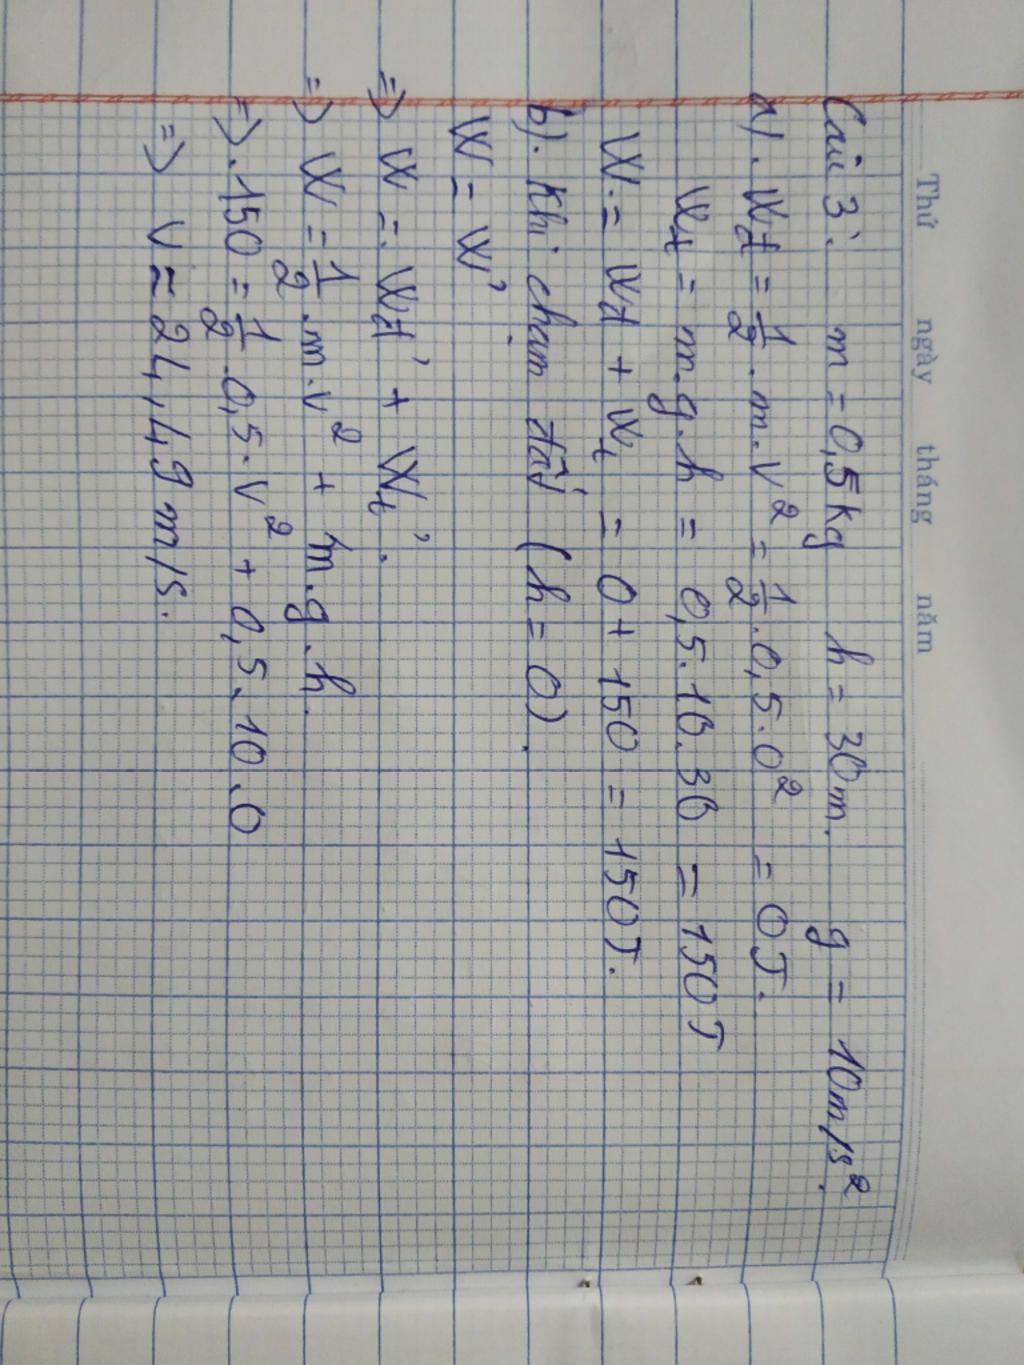 Thứ ngày tháng năm
Câu 3: m = 0,5kg h = 30m. g = 10m/s².
a). Wđ = 1/2 .m.v² = 1/2 .0,5.0² = 0J.
Wt = m.g.h = 0,5.10.30 = 150J
W = Wđ + Wt = 0 + 150 = 150J.
b). Khi chạm đất (h = 0).
W = W'
=> W = Wđ' + Wt'.
=> W = 1/2 .m.v² + m.g.h.
=> 150 = 1/2 .0,5.v² + 0,5.10.0
=> v ≈ 24,49m/s.